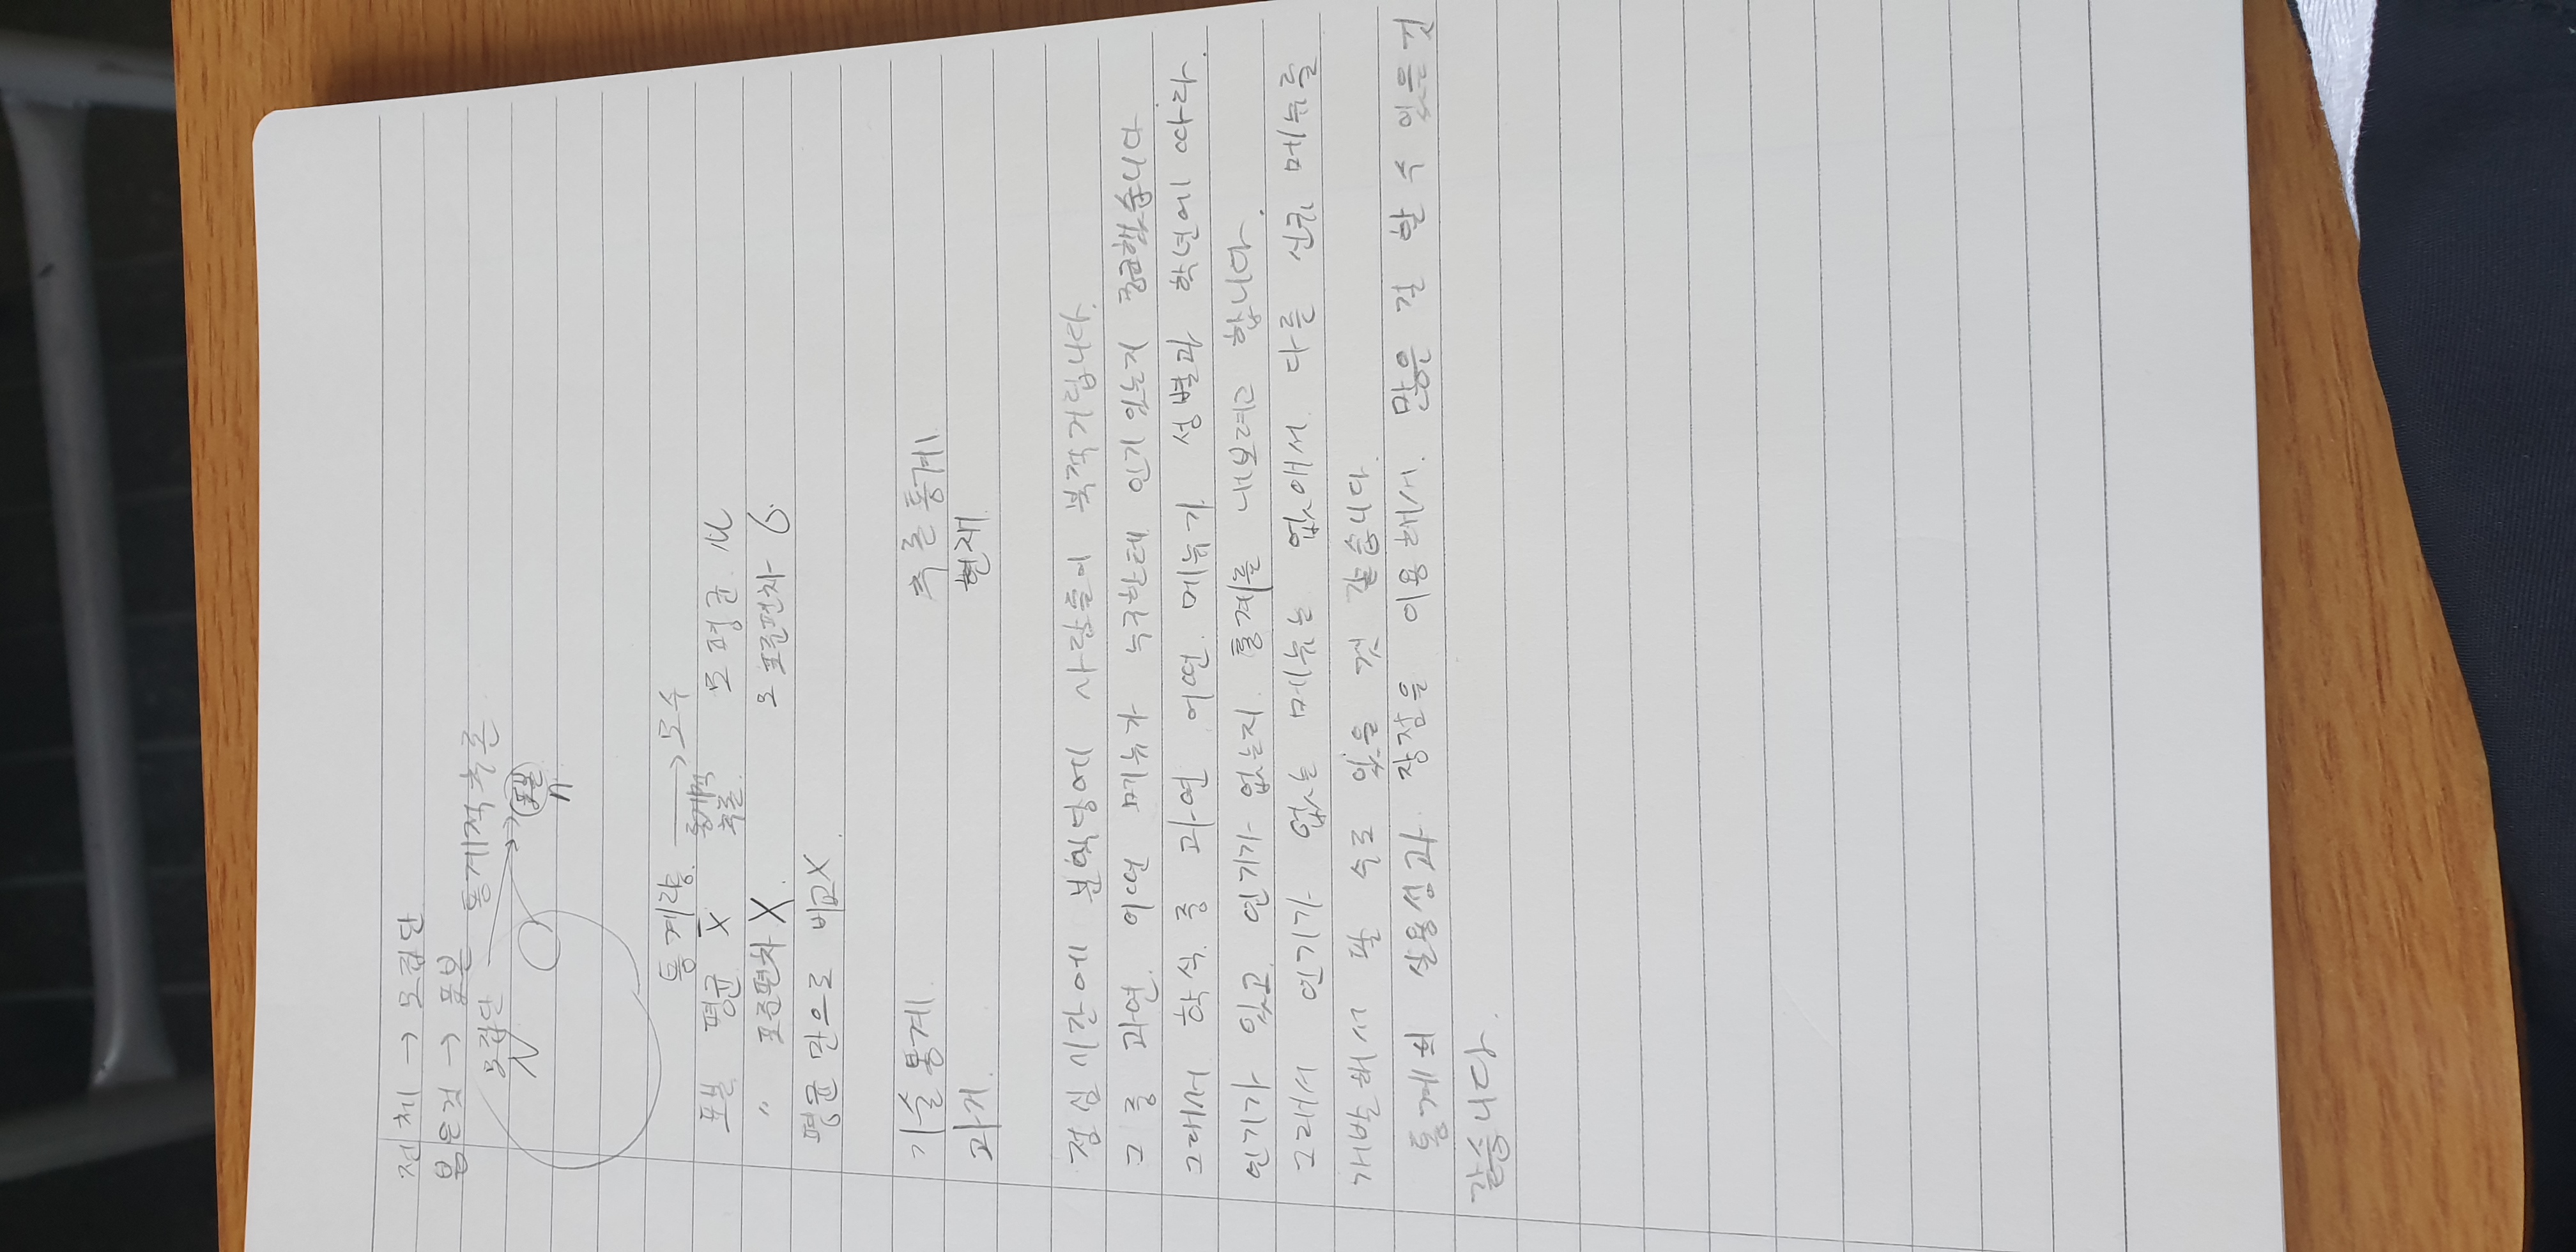 전체 → 모집단
뽑은것 → 표본
통계적추론
모집단
N
표본
n
통계량 → 모수
통계적
추론
표본 평균 X̄ 모평균 μ
〃 표준편차 X. 모 표준편차 σ
평균 만으로 비교X
기술통계 추론통계
과거 현재
점심시간에 분식당에 사람들이 북적거립니다.
그 중 과연 어떤 메뉴가 누구한테 인기 있는지 궁금했습니다
그래서 학식 중 과연 어떤 메뉴가 성별과 학년에 따라
인기가 있고 인기가 없는지 통계를 내보려고 합니다.
그래서 인기가 없는 메뉴는 없애서 다른 신규 메뉴를
개발해서 팔 수도 있을 것 같습니다.
통계의 실용성과 장점을 이용해서 많은 걸 할 수 있을것
같습니다.